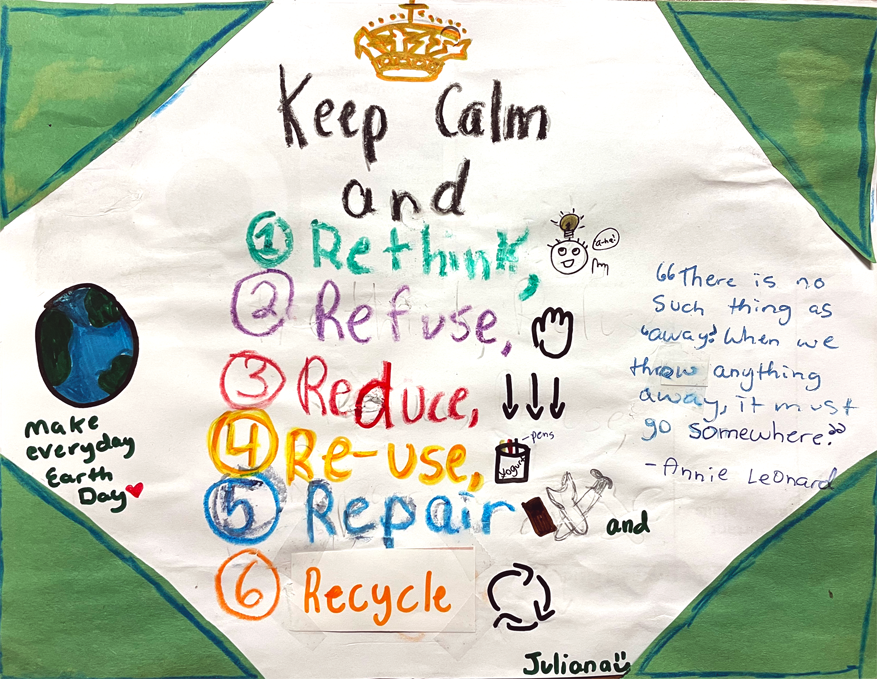 Keep Calm
and
1 Rethink,
a-ha!
2 Refuse,
3 Reduce,
4 Re-use,
pens
Yogurt
5 Repair
and
6 Recycle
Make
everyday
Earth
Day
“There is no
such thing as
‘away’. When we
throw anything
away, it must
go somewhere.”
-Annie Leonard
Juliana